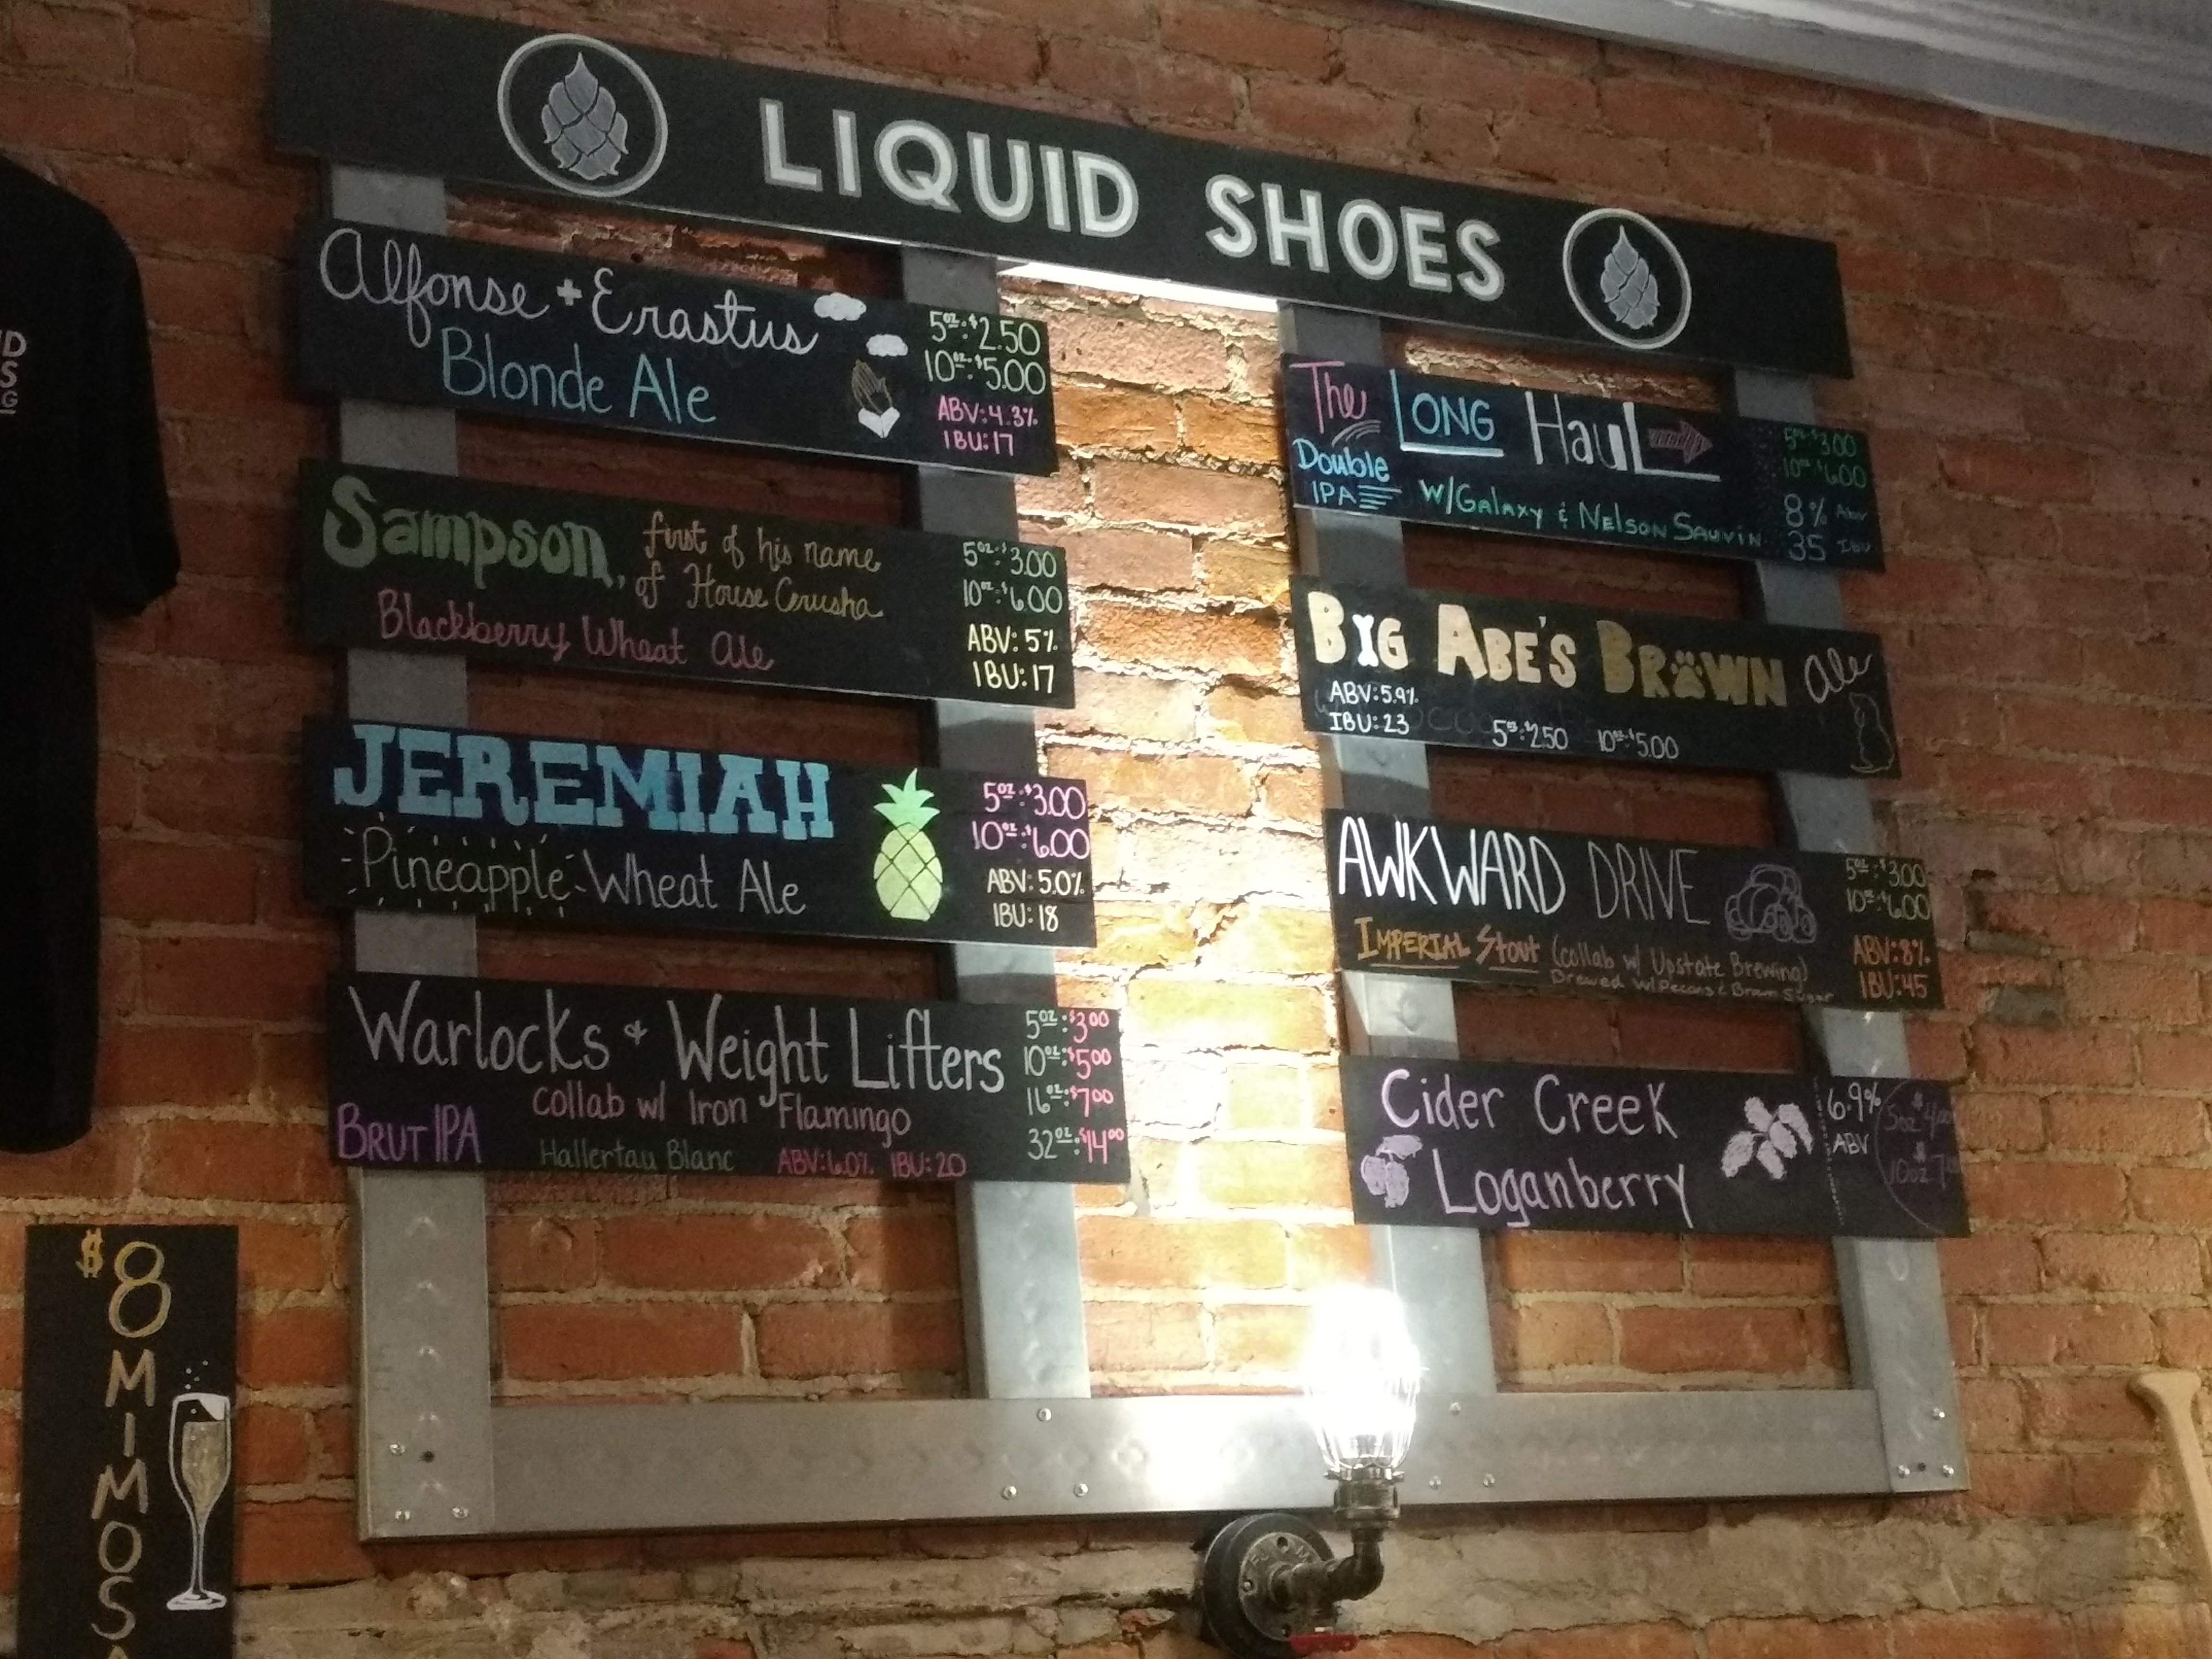 LIQUID SHOES
Alfonse + Erastus
Blonde Ale
5oz: $2.50
10oz: $5.00
ABV: 4.3%
IBU: 17
Sampson, first of his name
of House Cerusha
Blackberry Wheat Ale
5oz: $3.00
10oz: $6.00
ABV: 5%
IBU: 17
JEREMIAH
Pineapple Wheat Ale
5oz: $3.00
10oz: $6.00
ABV: 5.0%
IBU: 18
Warlocks + Weight Lifters
collab w/ Iron Flamingo
BRUT IPA
Hallertau Blanc ABV: 6.0% IBU: 20
5oz: $3.00
10oz: $5.00
16oz: $7.00
32oz: $14.00
The LONG HauL
Double
IPA
W/Galaxy & Nelson Sauvin
5oz: $3.00
10oz: $6.00
8% ABV
35 IBU
BIG ABE'S BROWN Ale
ABV: 5.9%
IBU: 23
5oz: $2.50 10oz: $5.00
AWKWARD DRIVE
IMPERIAL Stout (collab w/ Upstate Brewing)
Brewed w/ Pecans & Brown Sugar
5oz: $3.00
10oz: $6.00
ABV: 8%
IBU: 45
Cider Creek
Loganberry
6.9%
ABV
5oz $4.00
10oz $7
$8
MIMOSA